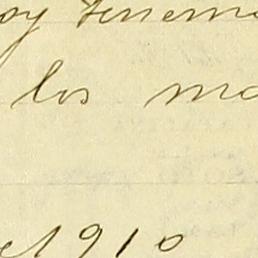 oy tenemo
los ma
el 1910